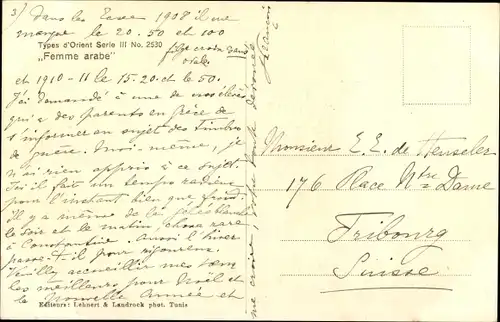 3) Dans les Taxes 1908 il me
manque le 20. 50 et 100
Types d'Orient Serie III No. 2530
filigr croix dans
„Femme arabe"
ovale
et 1910-11 le 15. 20. et le 50.
J'ai demandé à une de nos élèves
qui a des parents en Grèce de
s'informer au sujet des Timbres
de guerre. Moi-même, je
n'ai rien appris à ce sujet.
Ici il fait un temps radieux
pour l'instant bien que froid.
Il y a même de la gelée blanche
le soir et le matin, chose rare
à Constantine. Aussi l'hiver
passe-t-il pour rigoureux.
Veuillez accueillir mes vœux
les meilleurs pour Noël et
la Nouvelle Année et
Editeurs: Lehnert & Landrock phot. Tunis
me croire, votre
Monsieur E. E. de Heuseler
176 Place Ntre=Dame
Fribourg
Suisse